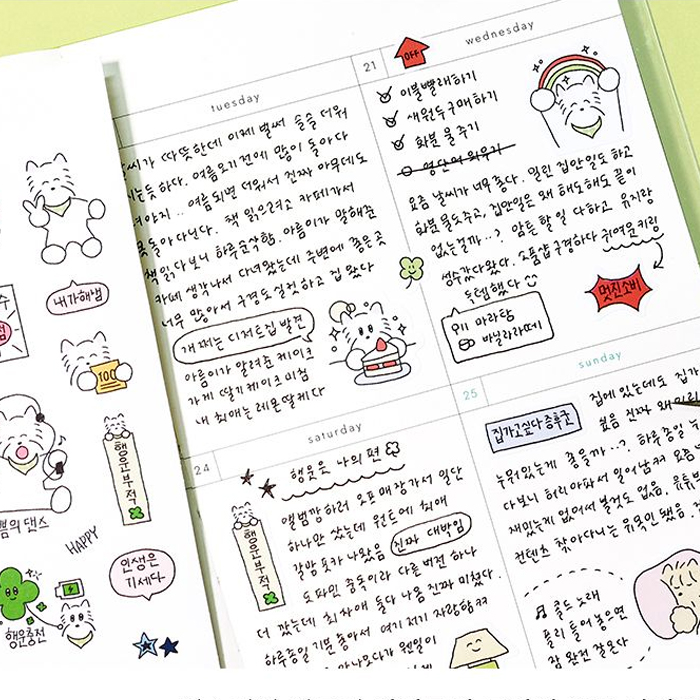 tuesday
날씨가 따뜻한데 이제 벌써 슬슬 더워
지는듯하다. 여름오기전에 많이 돌아다
녀야지.. 여름되면 더워서 진짜 아무데도
못돌아다닌다. 책 읽으려고 카페가서
책읽다보니 하루순삭함. 아름이가 말해준
카페 생각나서 다녀왔는데 주변에 좋은곳
너무 많아서 구경도실컷하고 집 왔다
개쩌는 디저트집 발견
아름이가 알려준 케이크
가게 딸기케이크 미침
내 최애는 레몬딸케다
21
wednesday
OFF
이불빨래하기
새원두구매하기
화분 물주기
영단어 외우기
요즘 날씨가 너무좋다. 밀린 집안일도 하고
화분 물도주고, 집안일은 왜 해도해도 끝이
없는걸까..? 암튼 할 일 다하고 유지랑
성수갔다왔다. 소품샵 구경하다 귀여운키링
득템했다
멋진소비
마라탕
바닐라라떼
24
saturday
행운은 나의 편
앨범깡하러 오프매장가서 일단
하나만 샀는데 원트에 최애
갈망포카 나왔음 진짜 대박임
도파민 중독이라 다른버전 하나
더 깠는데 최차애 둘다 나옴 진짜 미쳤다.
하루종일 기분좋아서 여기저기 자랑함ㅋㅋ
행운부적
25
sunday
집가고싶다증후군
집에있는데도 집가
싶음 진짜 왜이러
누워있는게 좋을까..? 하루종일 누
다보니 허리아파서 일어남ㅋㅋ 요즘
재밌는게 없어서 볼것도 없음. 유튜브
컨텐츠 찾아다니는 유목민됐음.
콜드 노래
플리 틀어놓으면
잠 완전 잘온다
내가해냄
100
행운부적
쁨의 댄스
HAPPY
인생은
기세다!
행운충전